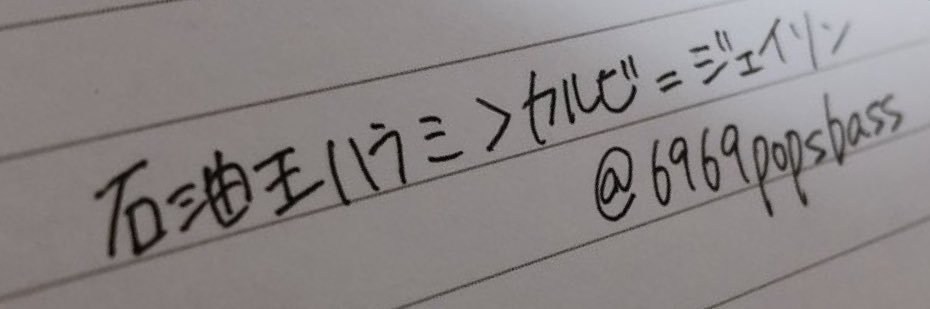 石油王ハラミ>カルビ=ジェイソン
@6969popsbass